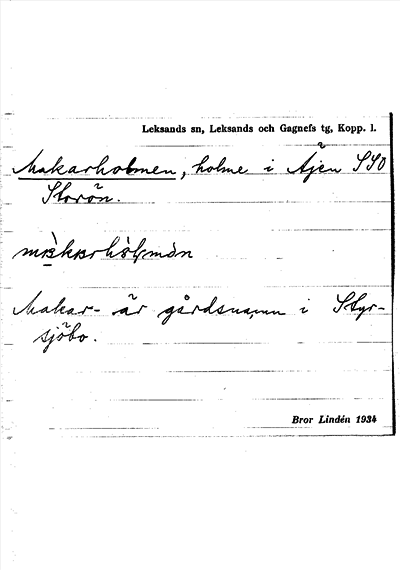 Leksands sn, Leksands och Gagnefs tg, Kopp. l.
Makarholmen, holme i Åjen SSO
Storön.
Makar- är gårdsnamn i Styr-
sjöbo.
Bror Lindén 1934